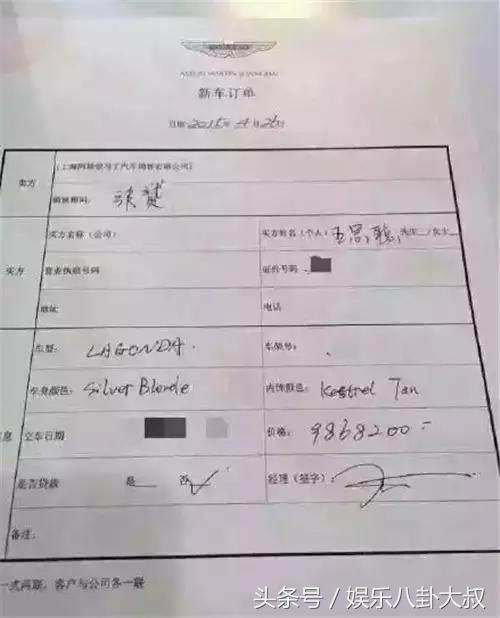 ASTON MARTIN SHANGHAI
新车订单
日期 2015年4月26日
卖方
(上海阿斯顿马丁汽车销售有限公司)
销售顾问:
买方
买方名称(公司)
买方姓名(个人) 王思聪 先生/女士
营业执照号码
证件号码
地址
电话
车型: LAGONDA
车架号:
车身颜色: Silver Blonde
内饰颜色: Kestrel Tan
息
交车日期
价格: 9868200-
是否贷款 是 否✓
经理(签字):
备注:
一式两联, 客户与公司各一联
头条号 / 娱乐八卦大叔